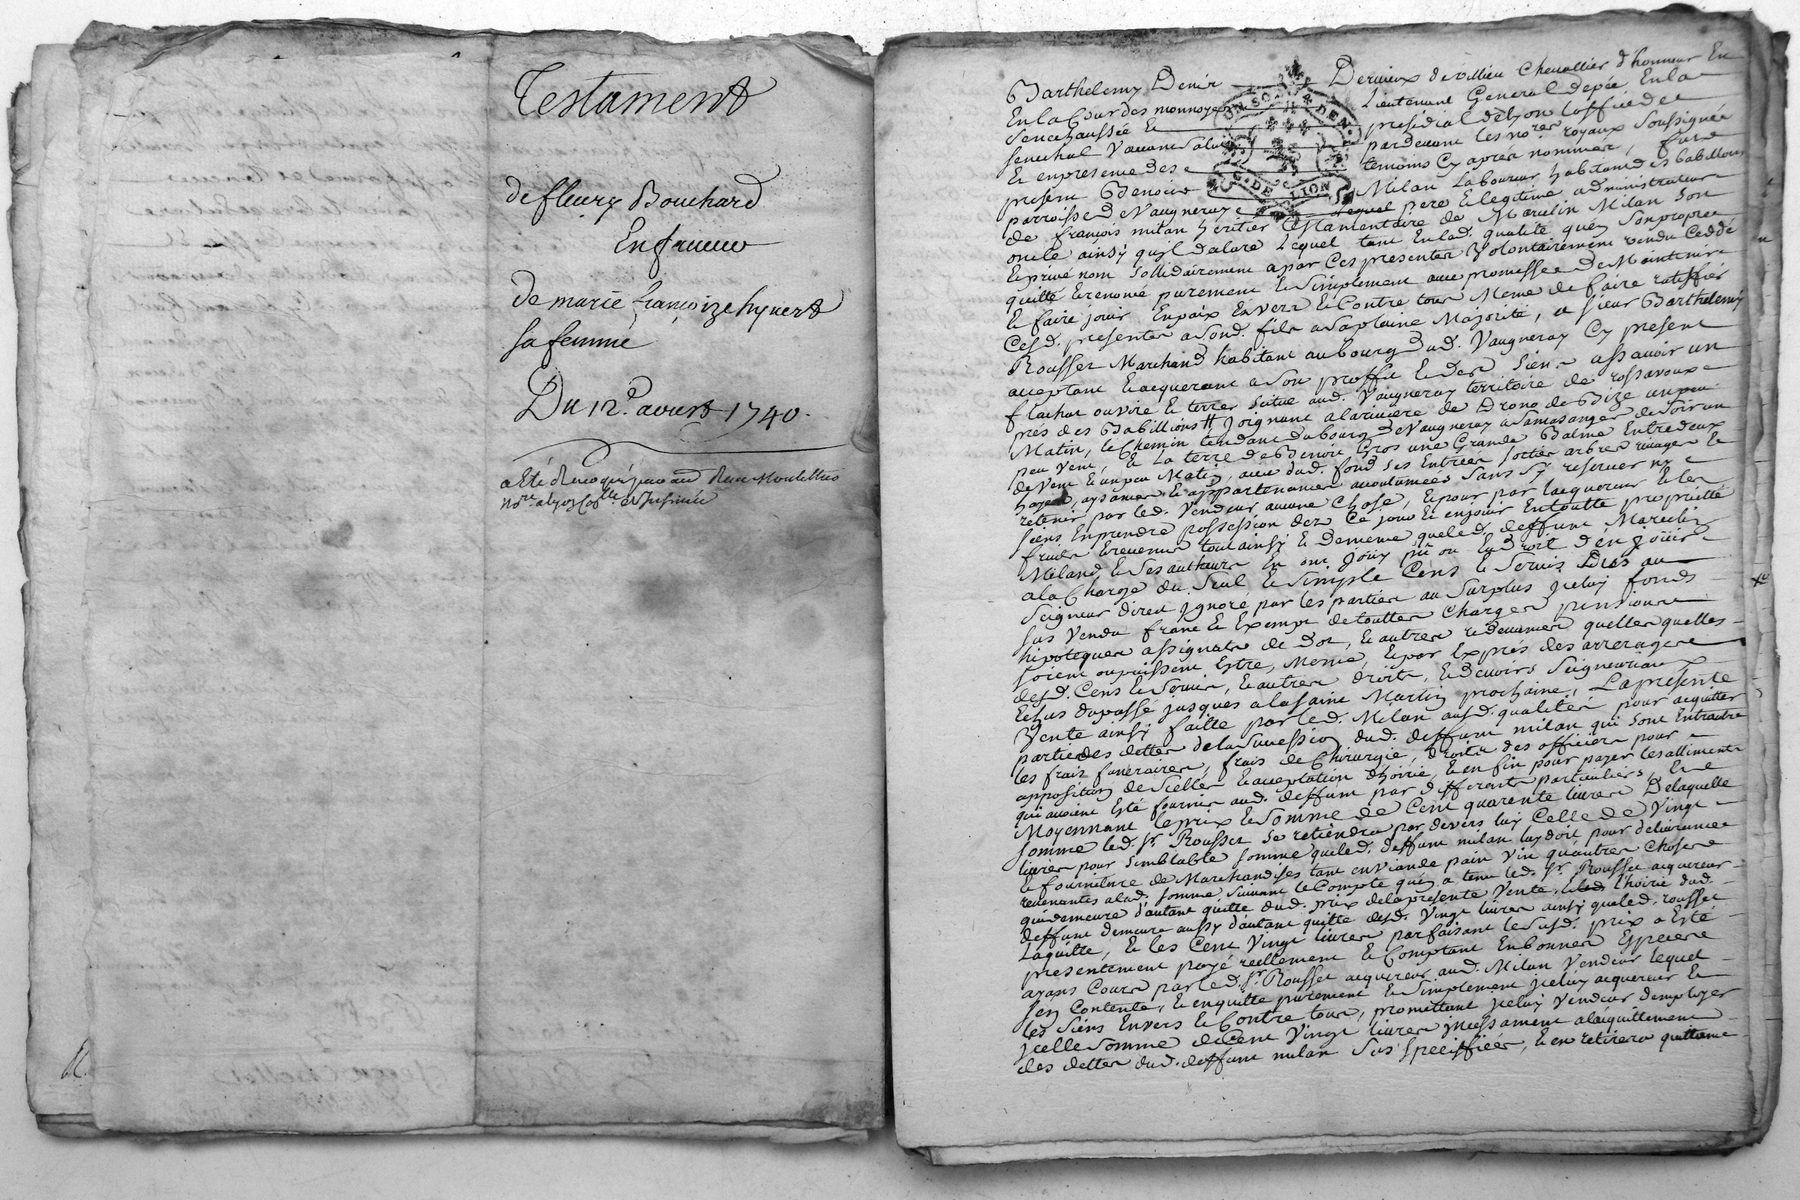 Testament
de fleury Bouchard
En faveur
de marie françoize hyvert
sa femme
Du 12e. avril 1740.
a Eté
Barthelemy Denis Dervieux de villieu Chevallier d'honneur En
En la Cour des monnoyes Lieutenant General d'epée En la
Senechaussée Et presidial de Lyon L'office de
Senechal Vacant Salut pardevant les nores. royaux Soussignés
Et en presence des temoins Cy aprés nommés, fut
present Benoist Milan Laboureur habitant des babillions
parroisse de Vaugneray Lequel pere Et legitime administrateur
de françois milan heritier testamentaire de Marcelin Milan Son
oncle ainsy qu'il declare Lequel tant En lad. qualité qu'en Son propre
Et privé nom Sollidairement a par Ces presentes Volontairement vendu Ceddé
quitté Et remis purement Et Simplement avec promesse de Maintenir
Et faire jouir En paix Envers Et Contre tous Meme de faire ratiffier
Cesd. presentes a Sond. fils a Sa plaine Majorité, a Sieur Barthelemy
Rousset Marchand habitant au bourg dud. Vaugneray Cy present
acceptant Et acquerant a Son proffit Et des Siens assavoir un
fond Situé aud. Vaugneray territoire de
prés des Babillions Joignant a la riviere de
Matin, le Chemin tendant du bourg de Vaugneray a de Soir un
peu Vent, Et La terre de Benoist Gros une Grande Balme Entredeux
de Vent Et un peu Matin, avec dud. fond Ses Entrées Sorties arbres rivages Et
hayes, aysances Et appartenances accoutumées Sans S'y reserver ny
retenir par led. Vendeur aucune Chose, Et pour par lacquereur Et les
Siens En prendre possession dez Ce jour Et en jouir En toutte proprietté
fruits Et revenus tout ainsy Et de meme que led. deffunt Marcelin
Miland Et Ses autheurs En ont Joüy pû ou Eu droit d'en Joüir
a la Charge du Seul Et Simple Cens Et Servis Dûs au
Seigneur direct Ignoré par les parties au Surplus Iceluy fonds
Sus Vendu franc Et Exempt de touttes Charges pensions
hipoteques assignats de Dot, Et autres redevances quelles quelles
Soient ou puissent Estre, Meme, Et par Exprès des arrerages
desd. Cens Et Servis, Et autres droits, Et devoirs Seigneuriaux
Echus du passé jusques a la Saint Martin prochaine, La presente
Vente ainsy faitte par led. Milan ausd. qualités pour acquitter
partie des dettes de la Succession dud. deffunt milan qui Sont Entrautre
les frais funeraires, frais de Chirurgie, droits des officiers pour
apposition de Scellés Et acceptation d'hoirie, Et en fin pour payer les alliments
qui avoient Eté fournis aud. deffunt par differents particuliers, Et
Moyennant le prix Et Somme de Cent quarente livres De laquelle
Somme led. Sr. Rousset Se retiendra par devers luy Celle de Vingt
livres pour Semblable Somme que led. deffunt milan luy doit pour delivrances
Et fourniture de Marchandises tant en Viande pain Vin qu'autres Choses
revenantes a lad. Somme Suivant le Compte qu'en a tenu led. Sr. Rousset acquereur
qui demeure d'autant quitte dud. prix de la presente Vente, l'hoirie dud.
deffunt demeure aussy d'autant quitte desd. Vingt livres ainsy que led. rousset
L'aquitte, Et les Cent Vingt livres parfaisant le Susd. prix a Eté
presentement payé reellement Et Comptant En bonnes Especes
ayans Cours par led. Sr. Rousset acquereur aud. Milan Vendeur lequel
S'en Contente, Et en quitte purement Et Simplement Iceluy acquereur Et
les Siens Envers Et Contre tous, promettant Iceluy Vendeur d'employer
Icelle Somme de Cent Vingt livres incessament a lacquittement
des dettes dud. deffunt milan Sus Speciffiées, Et en retirera quittance
G. DE LION